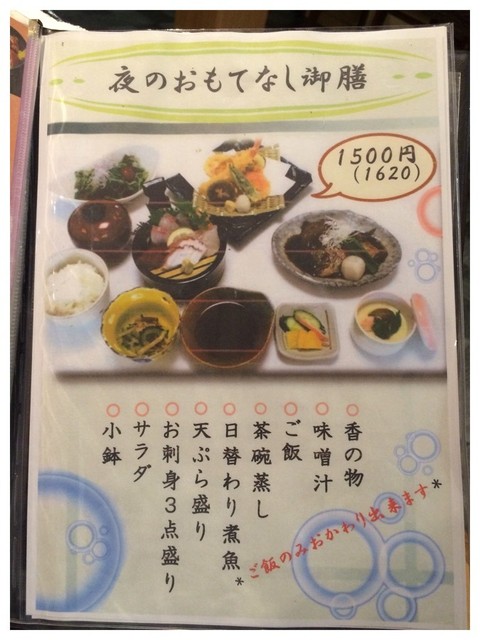 夜のおもてなし御膳
1500円
(1620)
○香の物
○味噌汁
○ご飯
○茶碗蒸し
○日替わり煮魚
○天ぷら盛り
○お刺身3点盛り
○サラダ
○小鉢
*ご飯のみおかわり出来ます*